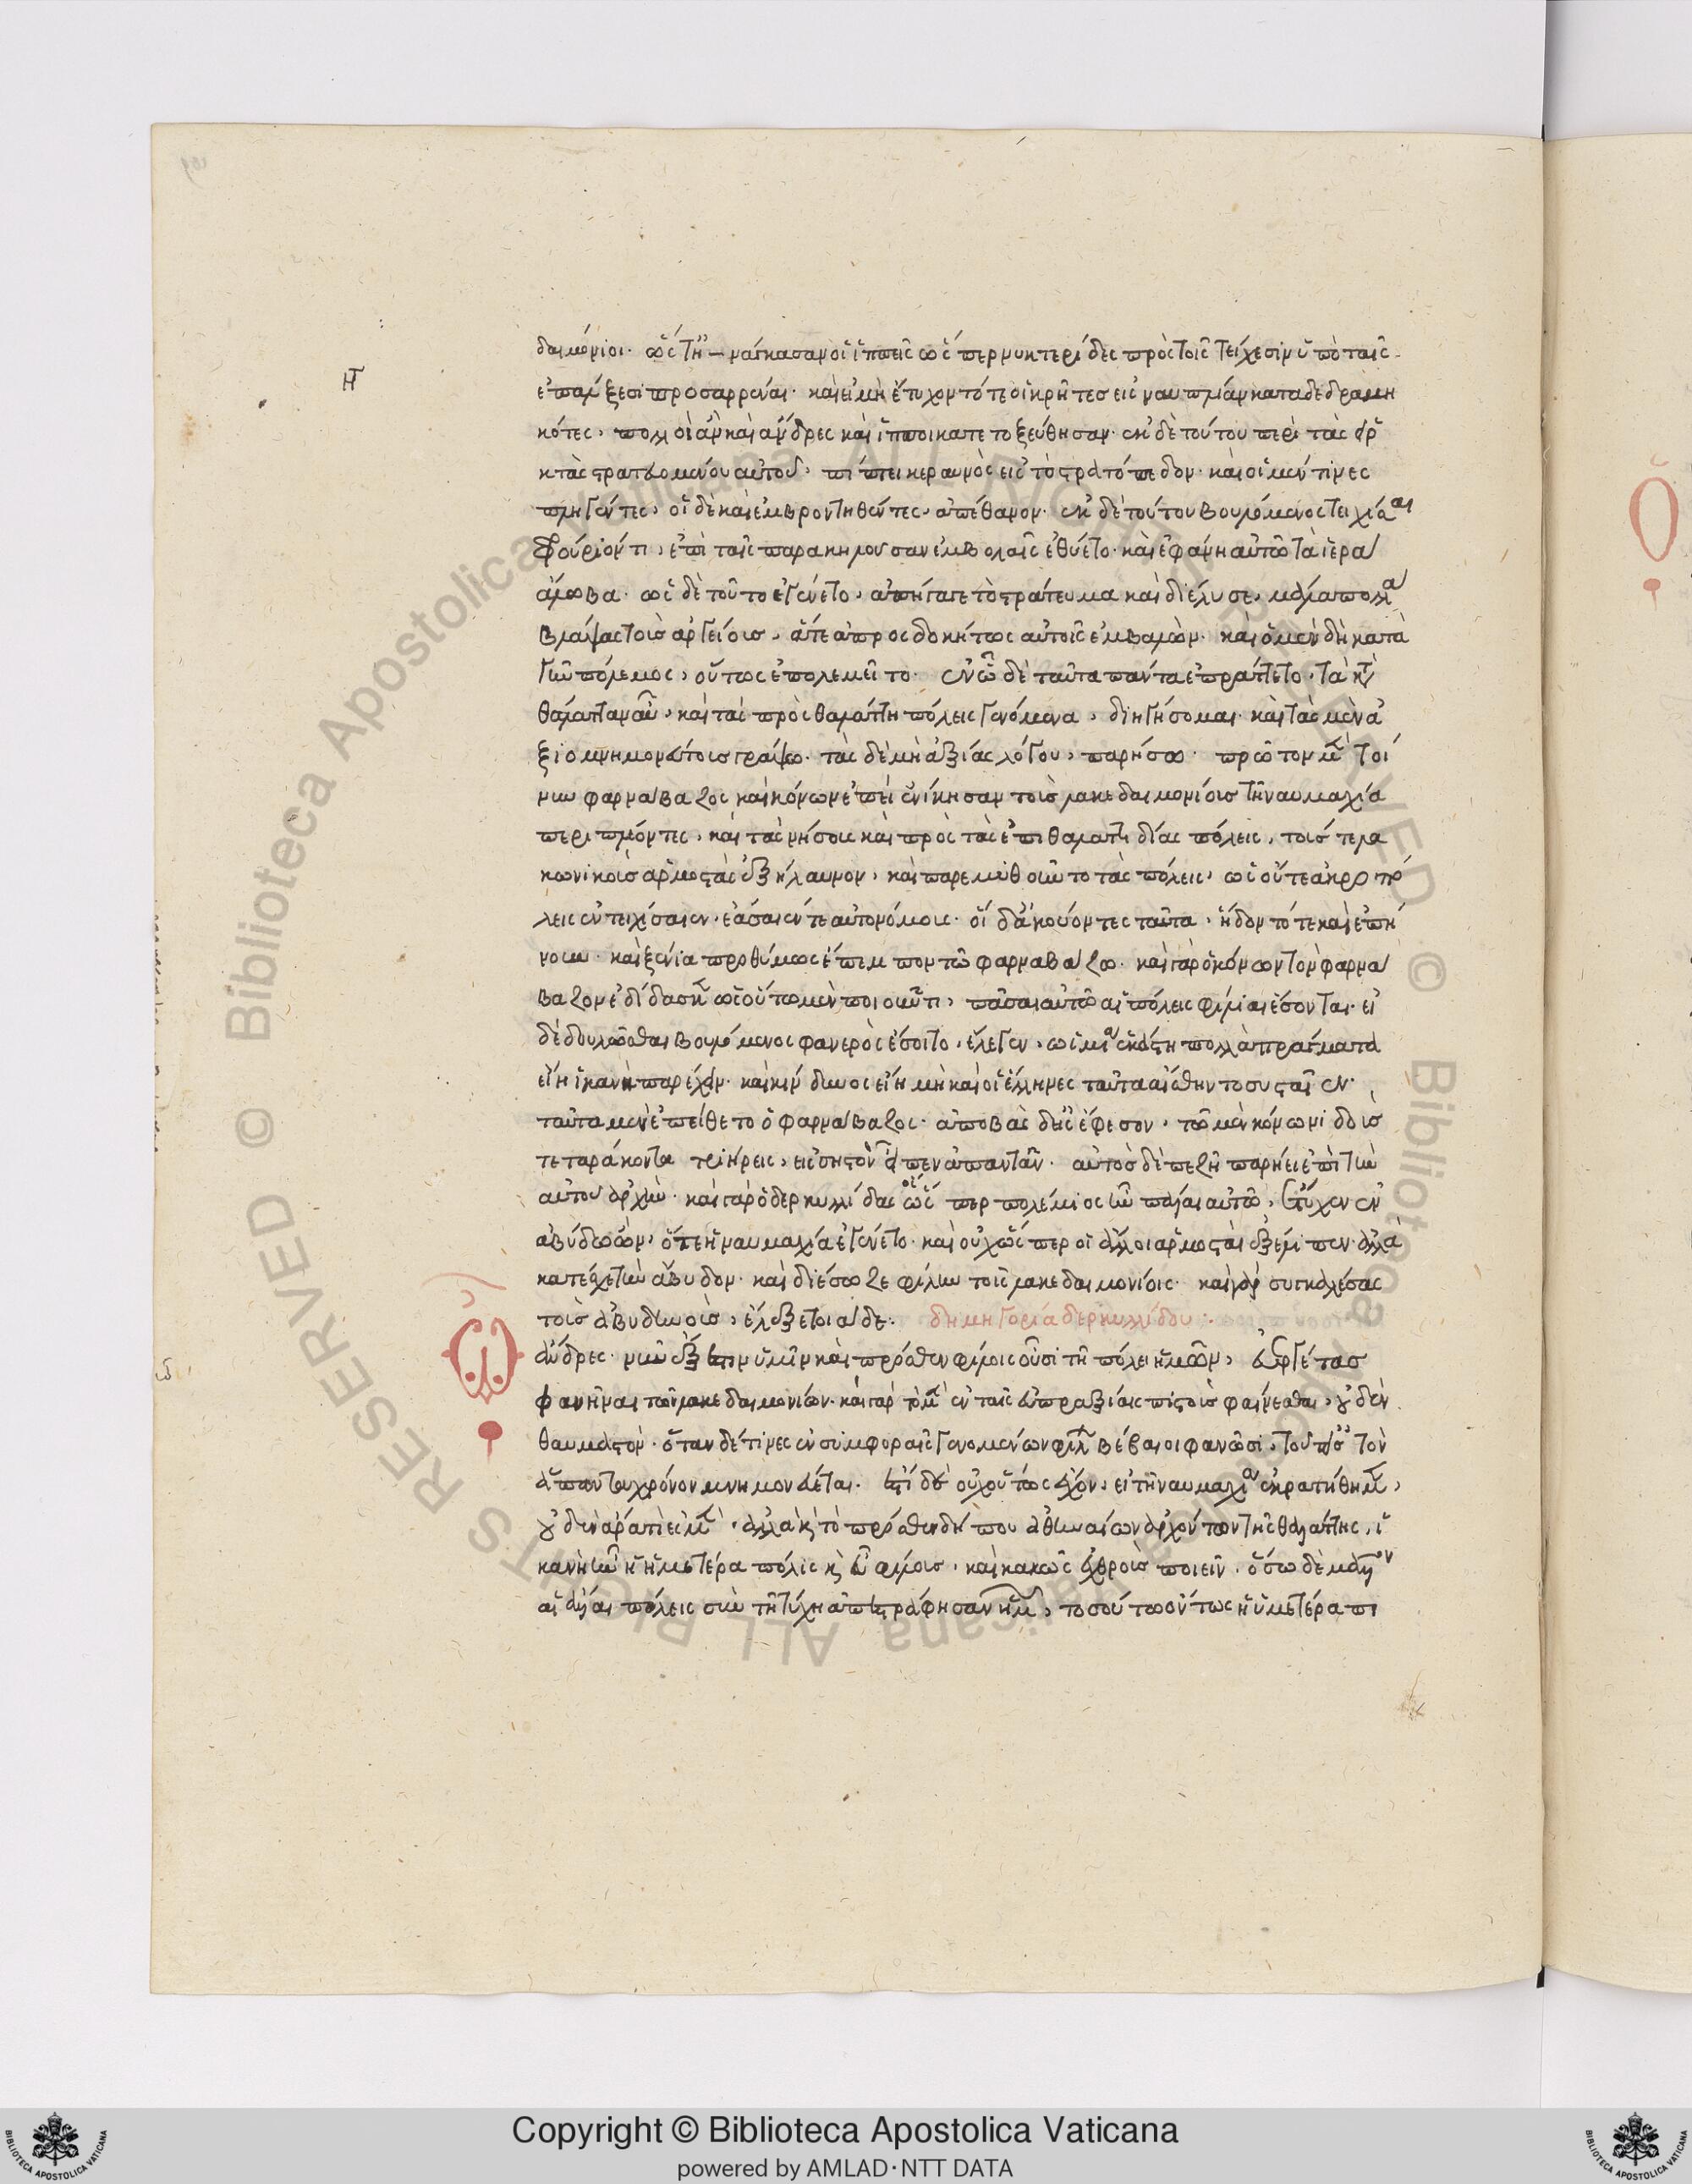 δαιμόνιοι. ὥστ' ἠνάγκασαν οἱ ἱππεῖς ὥσπερ νυκτερίδες πρὸς τοῖς τείχεσιν ὑπὸ ταῖς
ἐπάλξεσι προσαρρέναι. καὶ εἰ μὴ ἔτυχον τότε οἱ κρῆτες εἰς ναυπλίαν καταδεδραμη
κότες, πολλοὶ ἂν καὶ ἄνδρες καὶ ἵπποι κατετοξεύθησαν. ἐκ δὲ τούτου περὶ τὰς εἰρ
κτὰς στρατευομένου αὐτοῦ, πίπτει κεραυνὸς εἰς τὸ στρατόπεδον. καὶ οἱ μέν τινες
πληγέντες, οἱ δὲ καὶ ἐμβροντηθέντες, ἀπέθανον. ἐκ δὲ τούτου βουλόμενος τειχίσαι
φρούριόν τι, ἐπὶ ταῖς παρὰ κηλουσαν ἐμβολαῖς ἐθύετο. καὶ ἐφάνη αὐτῷ τὰ ἱερὰ
ἄλοβα. ὡς δὲ τοῦτο ἐγένετο, ἀπήγαγε τὸ στράτευμα καὶ διέλυσε, μάλα πολλὰ
βλάψας τοὺς ἀργείους, ἅτε ἀπροσδοκήτως αὐτοῖς ἐμβαλών. καὶ ὁ μὲν δὴ κατὰ
γῆν πόλεμος, οὕτως ἐπολεμεῖτο. ἐν ᾧ δὲ ταῦτα πάντα ἐπράττετο, τὰ κατὰ
θάλατταν αὖ, καὶ τὰς πρὸς θαλάττῃ πόλεις γενόμενα, διηγήσομαι. καὶ τὰς μὲν ἀ
ξιομνημονεύτους γράψω. τὰς δὲ μὴ ἀξίας λόγου, παρήσω. πρῶτον μὲν τοί
νυν φαρνάβαζος καὶ κόνων ἐπεὶ ἐνίκησαν τοὺς λακεδαιμονίους τῇ ναυμαχίᾳ
περιπλέοντες, καὶ τὰς νήσους καὶ πρὸς τὰς ἐπιθαλαττιδίας πόλεις, τούς τε λα
κωνικοὺς ἁρμοστὰς ἐξήλαυνον, καὶ παρεμυθοῦντο τὰς πόλεις, ὡς οὔτε ἀκροπό
λεις ἐντειχίσαιεν, ἐάσαιέν τε αὐτονόμους. οἱ δ' ἀκούοντες ταῦτα, ἥδοντό τε καὶ ἐπῄ
νουν. καὶ ξένια προθύμως ἔπεμπον τῷ φαρναβάζῳ. καὶ γὰρ ὁ κόνων τὸν φαρνά
βαζον ἐδίδασκεν ὡς οὕτω μὲν ποιοῦντι, πᾶσαι αὐτῷ αἱ πόλεις φίλιαι ἔσονται. εἰ
δὲ δουλοῦσθαι βουλόμενος φανερὸς ἔσοιτο, ἔλεγεν, ὡς μία ἑκάστη πολλὰ πράγματα
εἴη ἱκανὴ παρέχειν. καὶ κίνδυνος εἴη μὴ καὶ οἱ ἕλληνες ταῦτα αἴσθηντο συσταῖεν.
ταῦτα μὲν ἐπείθετο ὁ φαρνάβαζος. ἀποβὰς δ' εἰς ἔφεσον, τῷ μὲν κόνωνι δοὺς
τετταράκοντα τριήρεις, εἰς σηστὸν εἶπεν ἀπαντᾶν. αὐτὸς δὲ πεζῇ παρῄει ἐπὶ τὴν
αὑτοῦ ἀρχήν. καὶ γὰρ ὁ δερκυλλίδας ὥσπερ πολέμιος ἦν πάλαι αὐτῷ, ἔτυχεν ἐν
ἀβύδῳ ὤν, ὅτε ἡ ναυμαχία ἐγένετο. καὶ οὐχ ὥσπερ οἱ ἄλλοι ἁρμοσταὶ ἐξέλιπεν ἀλλὰ
κατέσχε τὴν ἄβυδον. καὶ διέσωζε φίλην τοῖς λακεδαιμονίοις. καὶ γὰρ συγκαλέσας
τοὺς ἀβυδηνοὺς, ἔλεξε τοιάδε. δημηγορία δερκυλλίδου :
Ὦ ἄνδρες. νῦν ἔξεστιν ὑμῖν καὶ πρόσθεν φίλοις οὖσι τῇ πόλει ἡμῶν, εὐεργέτας
φανῆναι τῶν λακεδαιμονίων. καὶ γὰρ τὸ μὲν ἐν ταῖς εὐπραξίαις πιστοὺς φαίνεσθαι, οὐδὲν
θαυμαστόν. ὅταν δέ τινες ἐν συμφοραῖς γενομένων φίλων βέβαιοι φανῶσι, τοῦτ' εἰς τὸν
ἅπαντα χρόνον μνημονεύεται. ἔστι δὲ οὐχ οὕτως ἔχον, εἰ τῇ ναυμαχίᾳ ἐκρατήθημεν,
οὐδὲν ἄρα ἔτι ἐσμέν. ἀλλὰ καὶ τὸ πρόσθεν δήπου ἀθηναίων ἀρχόντων τῆς θαλάττης, ἱ
κανὴ ἦν ἡ ἡμετέρα πόλις καὶ εὖ φίλους, καὶ κακῶς ἐχθροὺς ποιεῖν. ὅσῳ δὲ μᾶλλον
αἱ ἄλλαι πόλεις σὺν τῇ τύχῃ ἀπεστράφησαν ἡμῶν, τοσούτῳ οὕτως ἡ ὑμετέρα πι